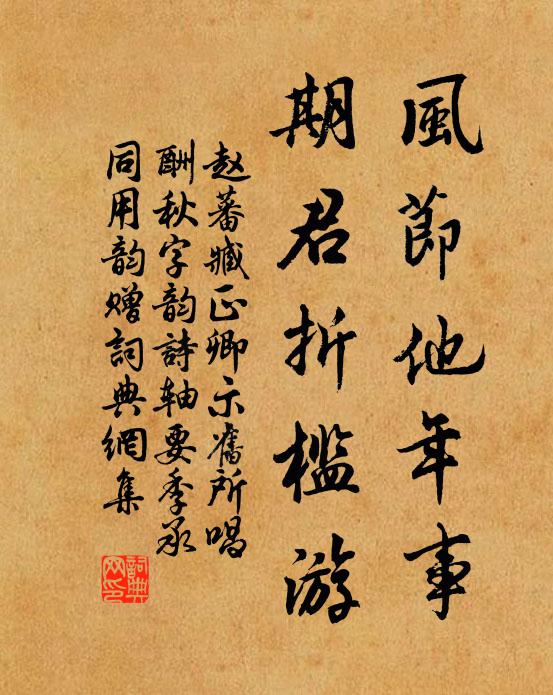 風節他年事
期君折檻游
赵蕃臧正卿示舊所唱
酬秋字韵詩轴要季承
同用韵赠詞典網集
詞典网印